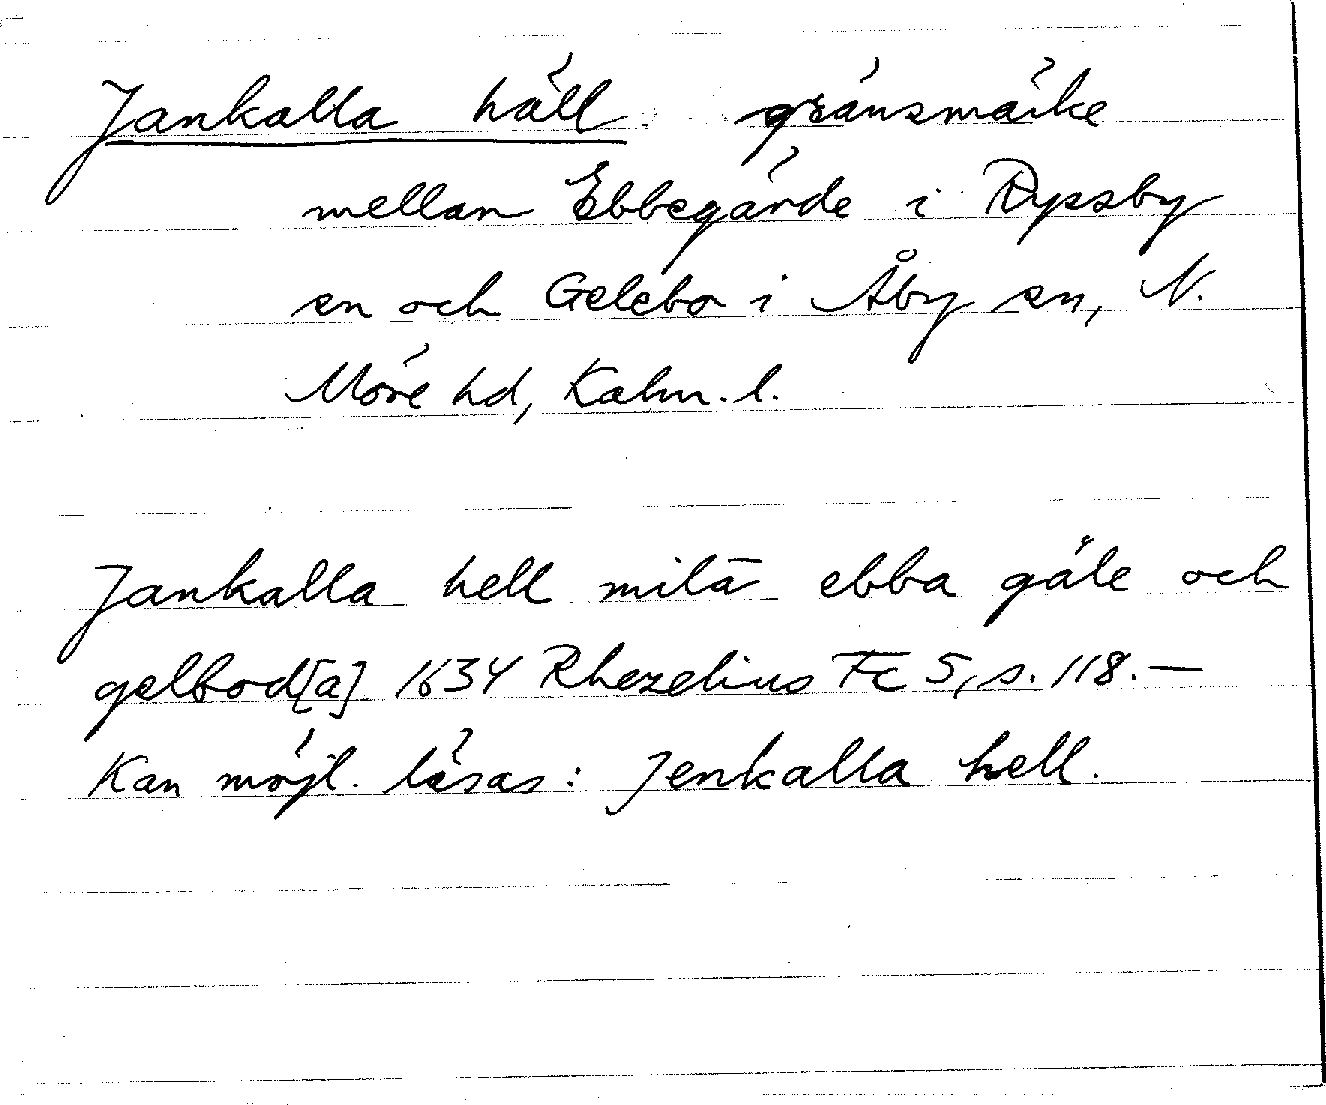 Jankalla häll gränsmärke
mellan Ebbegärde i Ryssby
sn och Gelebo i Åby sn, N.
Möre hd, Kalm. l.
Jankalla hell milā ebba gåle och
gelbod[a] 1634 Rhezelius Fc 5, s. 118. —
Kan möjl. läsas: Jenkalla hell.